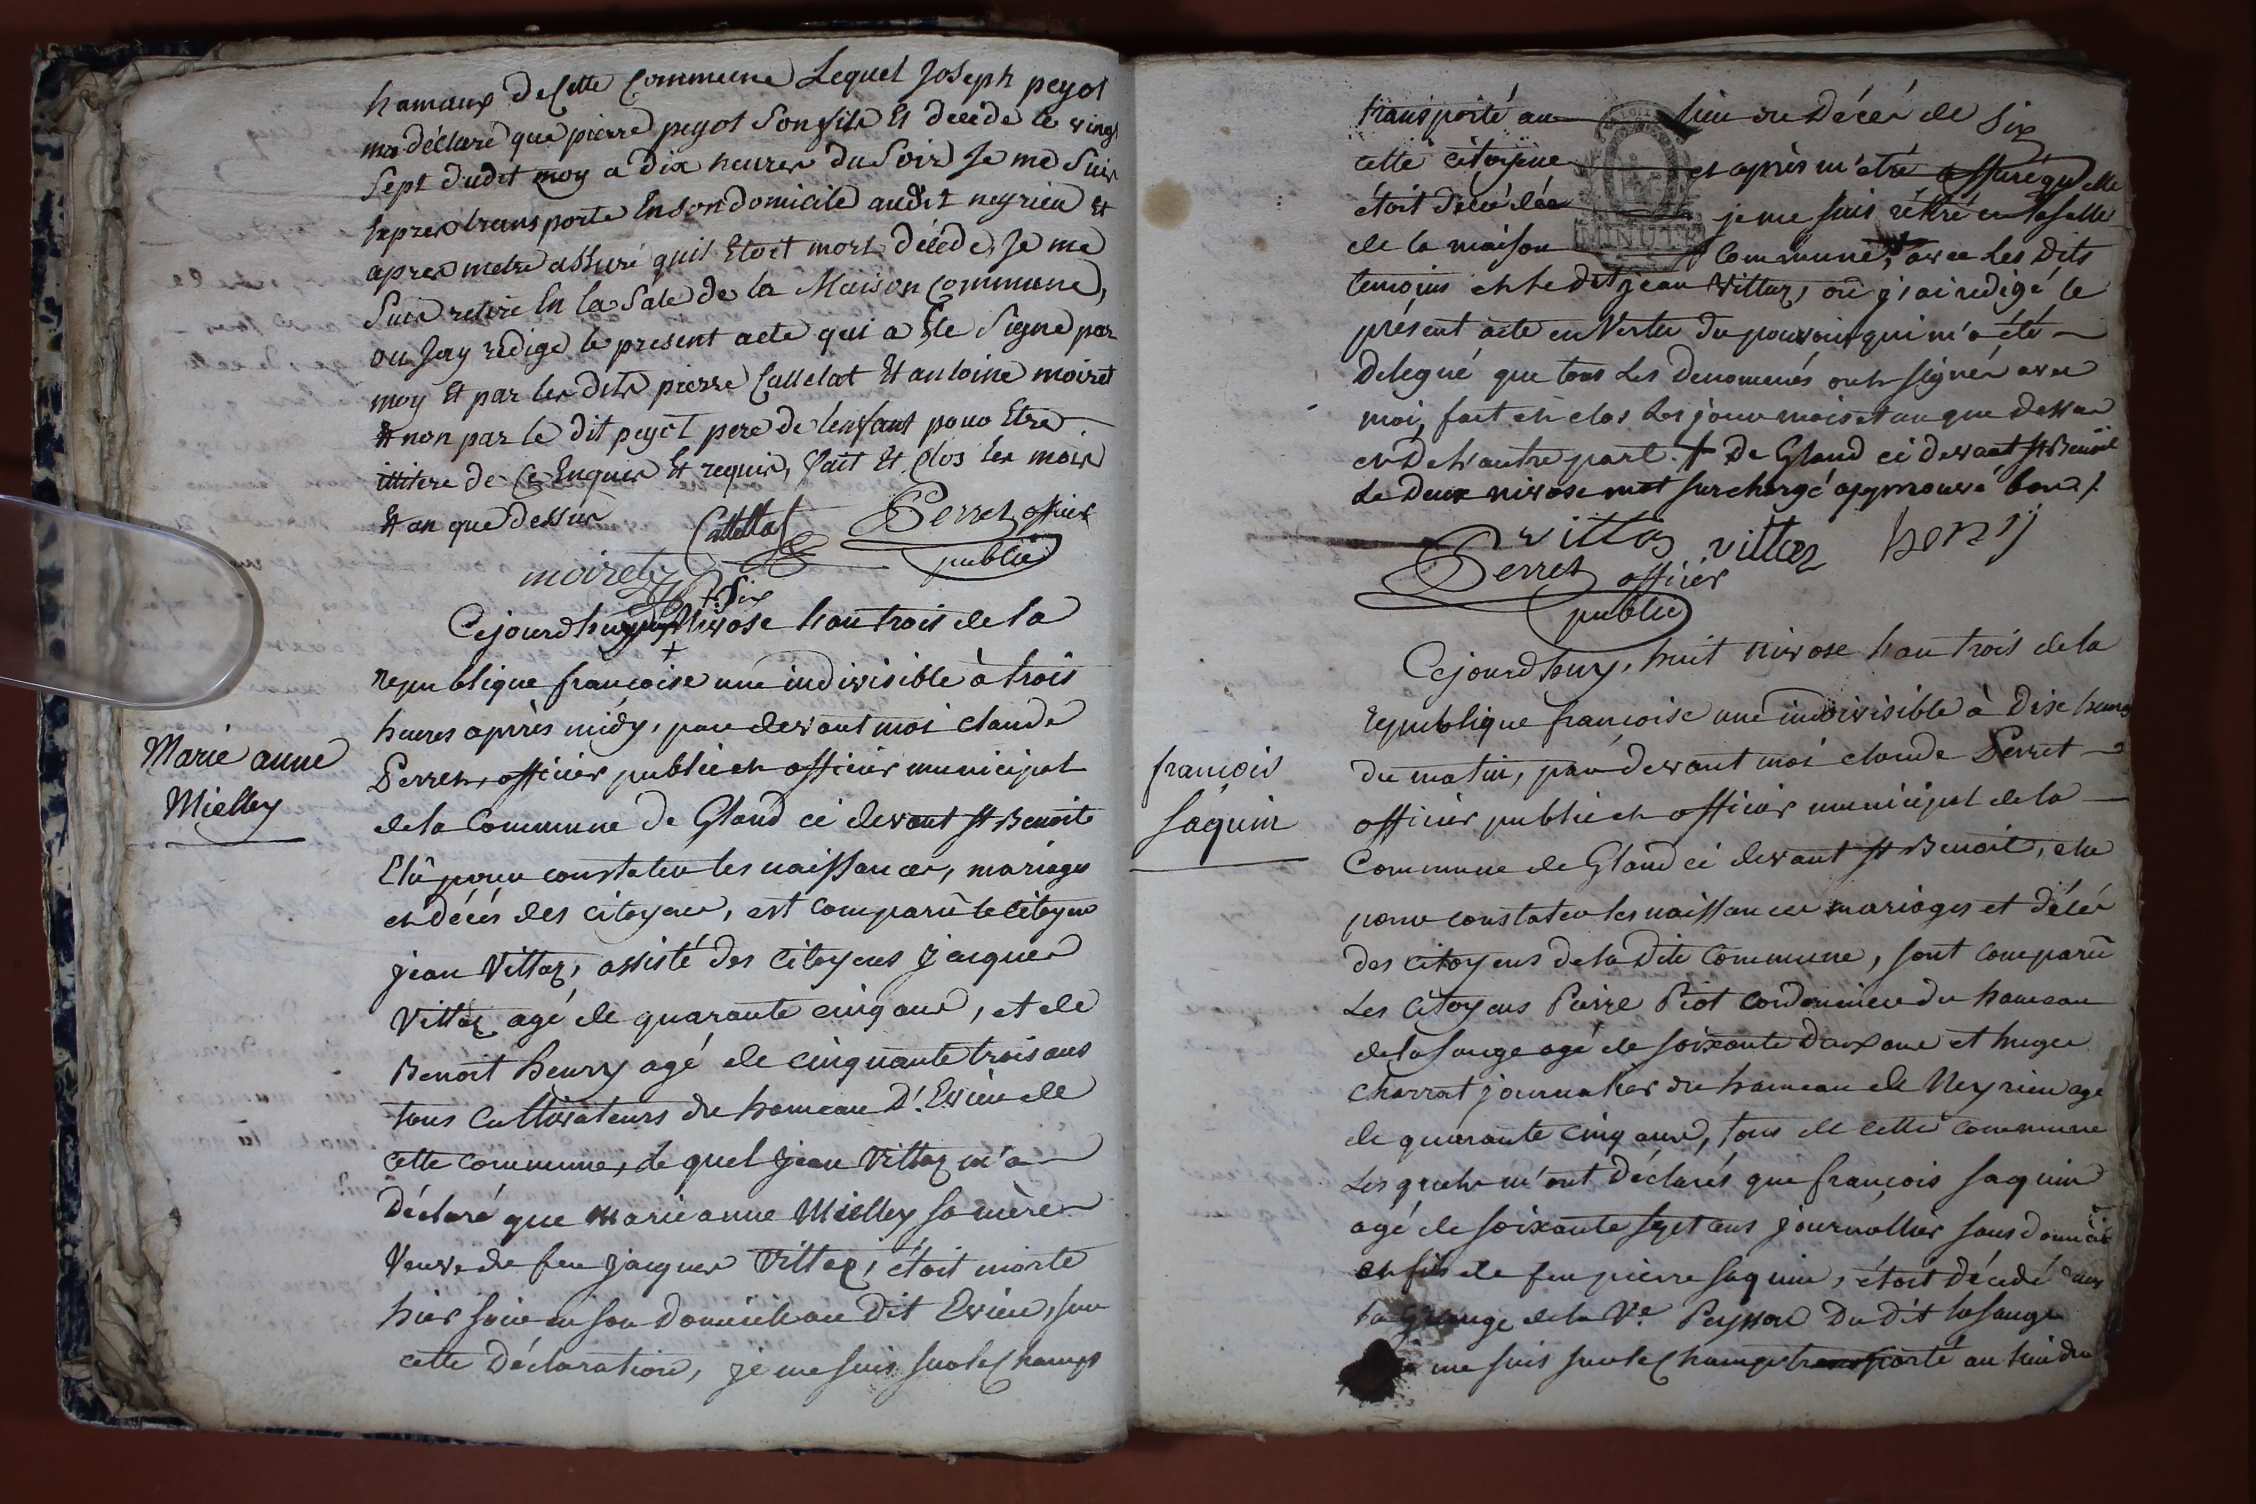 hamaux de Cette Commune Lequel Joseph peyot
ma déclaré que pierre peyot Son fils Et decede le vingt
Sept dudit moy a dix heures du Soir Je me Suis
transporte En son domicile audit neyrieu Et
apres metre assuré quil Etoit mort décedé, Je me
Suis retire En la Sale de la Maison Commune,
ou Jay redigé le present acte qui a Ete Signé par
moy Et par les dits pierre Callelat Et antoine moiret
Et non par le dit peyot pere de lenfant pour Etre
illitere de Ce Enquis Et requis, fait Et Clos les mois
Et an que dessus
Cattellat Perret officier
public
moiret
+ Six
Cejourdhuy nivose l'an trois de la
+
republique françoise une indivisible à trois
heures après midy, par devant moi claude
Perret, officier public et officier municipal
de la Commune de Gland ci devant st Benoite
Elû pour constater les naissances, mariages
et décés des citoyens, est comparû le citoyen
jean Vittoz, assisté des Citoyens Jacques
Vittoz agé de quarante cinq ans, et de
Benoit henry agé de cinquante trois ans
tous Cultivateurs du hameau D'Evieu de
cette commune, le quel Jean Vittoz m'a
Déclaré que marie anne Mielley sa mère
Veuve de feu Jacques Vittoz, étoit morte
hier soir en son Domicile au Dit Evieu, sur
cette Déclaration, je me suis sur le Champs
Marie anne
Mielley
transporté au lieu du Décés de
Six
cette citoyene et après m'etre assuré qu'elle
étoit décédée je me suis rétiré en la salle
MINUTE
de la maison Commune, avec les Dits
temoins et le Dit jean Vittoz, ou j'ai redigé le
présent acte en Vertu du pouvoir qui m'a été
Delegué que tous les Denomenés ont signés avec
moi, fait et clos les jour mois et an que dessus
et De l'autre part. + De Gland ci devant st Benoit
Le Deux nivose mot surchargé approuvé bon /.
vittoz vittoz henry
Perret officier
public
Cejourdhuy, huit nivose l'an trois de la
republique françoise une indivisible à Dix heures
du matin, par devant moi claude Perret
officier public et officier municipal de la
Commune de Gland ci devant st Benoit, elu
pour constater les naissances mariages et décés
des citoyens de la Dite Commune, sont comparû
Les Citoyens Pierre Piot Cordonnier du hameau
de la sauge agé de soixante Deux ans et hugue
Charrat journalier du hameau de Neyrieu agé
de quarante cinq ans, tous de cette commune
Les quels m'ont Déclarés que françois saquin
agé de soixante sept ans journallier sans domicile
et fils de feu pierre saquin, étoit décédé dans
la Grange de la Ve Peysson Du Dit lasauge
je me suis sur le Champs transporté au lieu du
françois
saquin